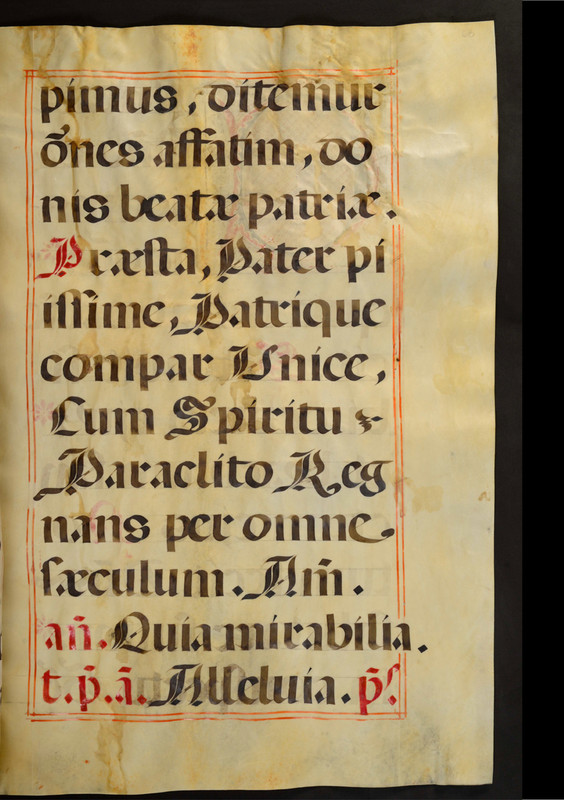 pimus, ditem̃ur
õnes affatim, do
nis beatæ patriæ.
Præsta, Pater pi
issime, Patrique
compar Unice,
Cum Spiritu
Paraclito Reg
nans per omne
sæculum. Am̃.
añ. Quia mirabilia.
t. p̃. ã. Alleluia. p̃s.